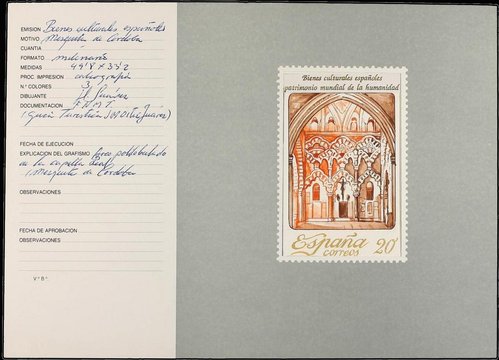 EMISION Bienes culturales españoles
MOTIVO Mezquita de Córdoba
CUANTIA
FORMATO
MEDIDAS 49'8 x 33'2
PROC. IMPRESION calcografía
N.º COLORES 3
DIBUJANTE
DOCUMENTACION F.N.M.T.
(Guía Turística
FECHA DE EJECUCION
EXPLICACION DEL GRAFISMO Arco polilobulado
de la capilla Real
(Mezquita de Córdoba
OBSERVACIONES
FECHA DE APROBACION
OBSERVACIONES
V.º B.º
Bienes culturales españoles
patrimonio mundial de la humanidad
España
CORREOS
20